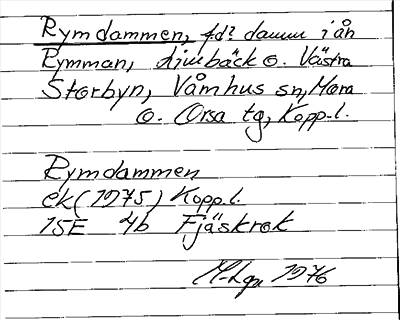 Rymdammen, f.d. damm i ån
Rymman, Limbäck o. Västra
Storbyn, Våmhus sn, Mora
o. Orsa tg, Kopp.l.
Rymdammen
ek (1975) Kopp.l.
15E 4b Fjäskrok
1976